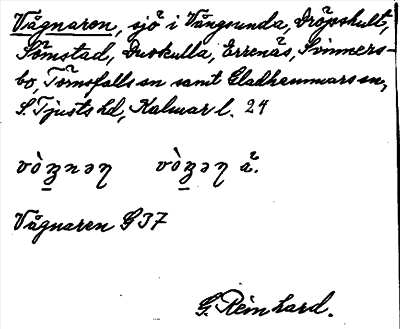 Vågnaren, sjö i Vångsunda, Dröpshult,
Sömstad, Duskulla, Errenäs, Svinners-
bo, Törnsfalls sn samt Gladhammars sn,
S. Tjusts hd, Kalmar l. 24
Vågnaren G 37
G. Reinhard.